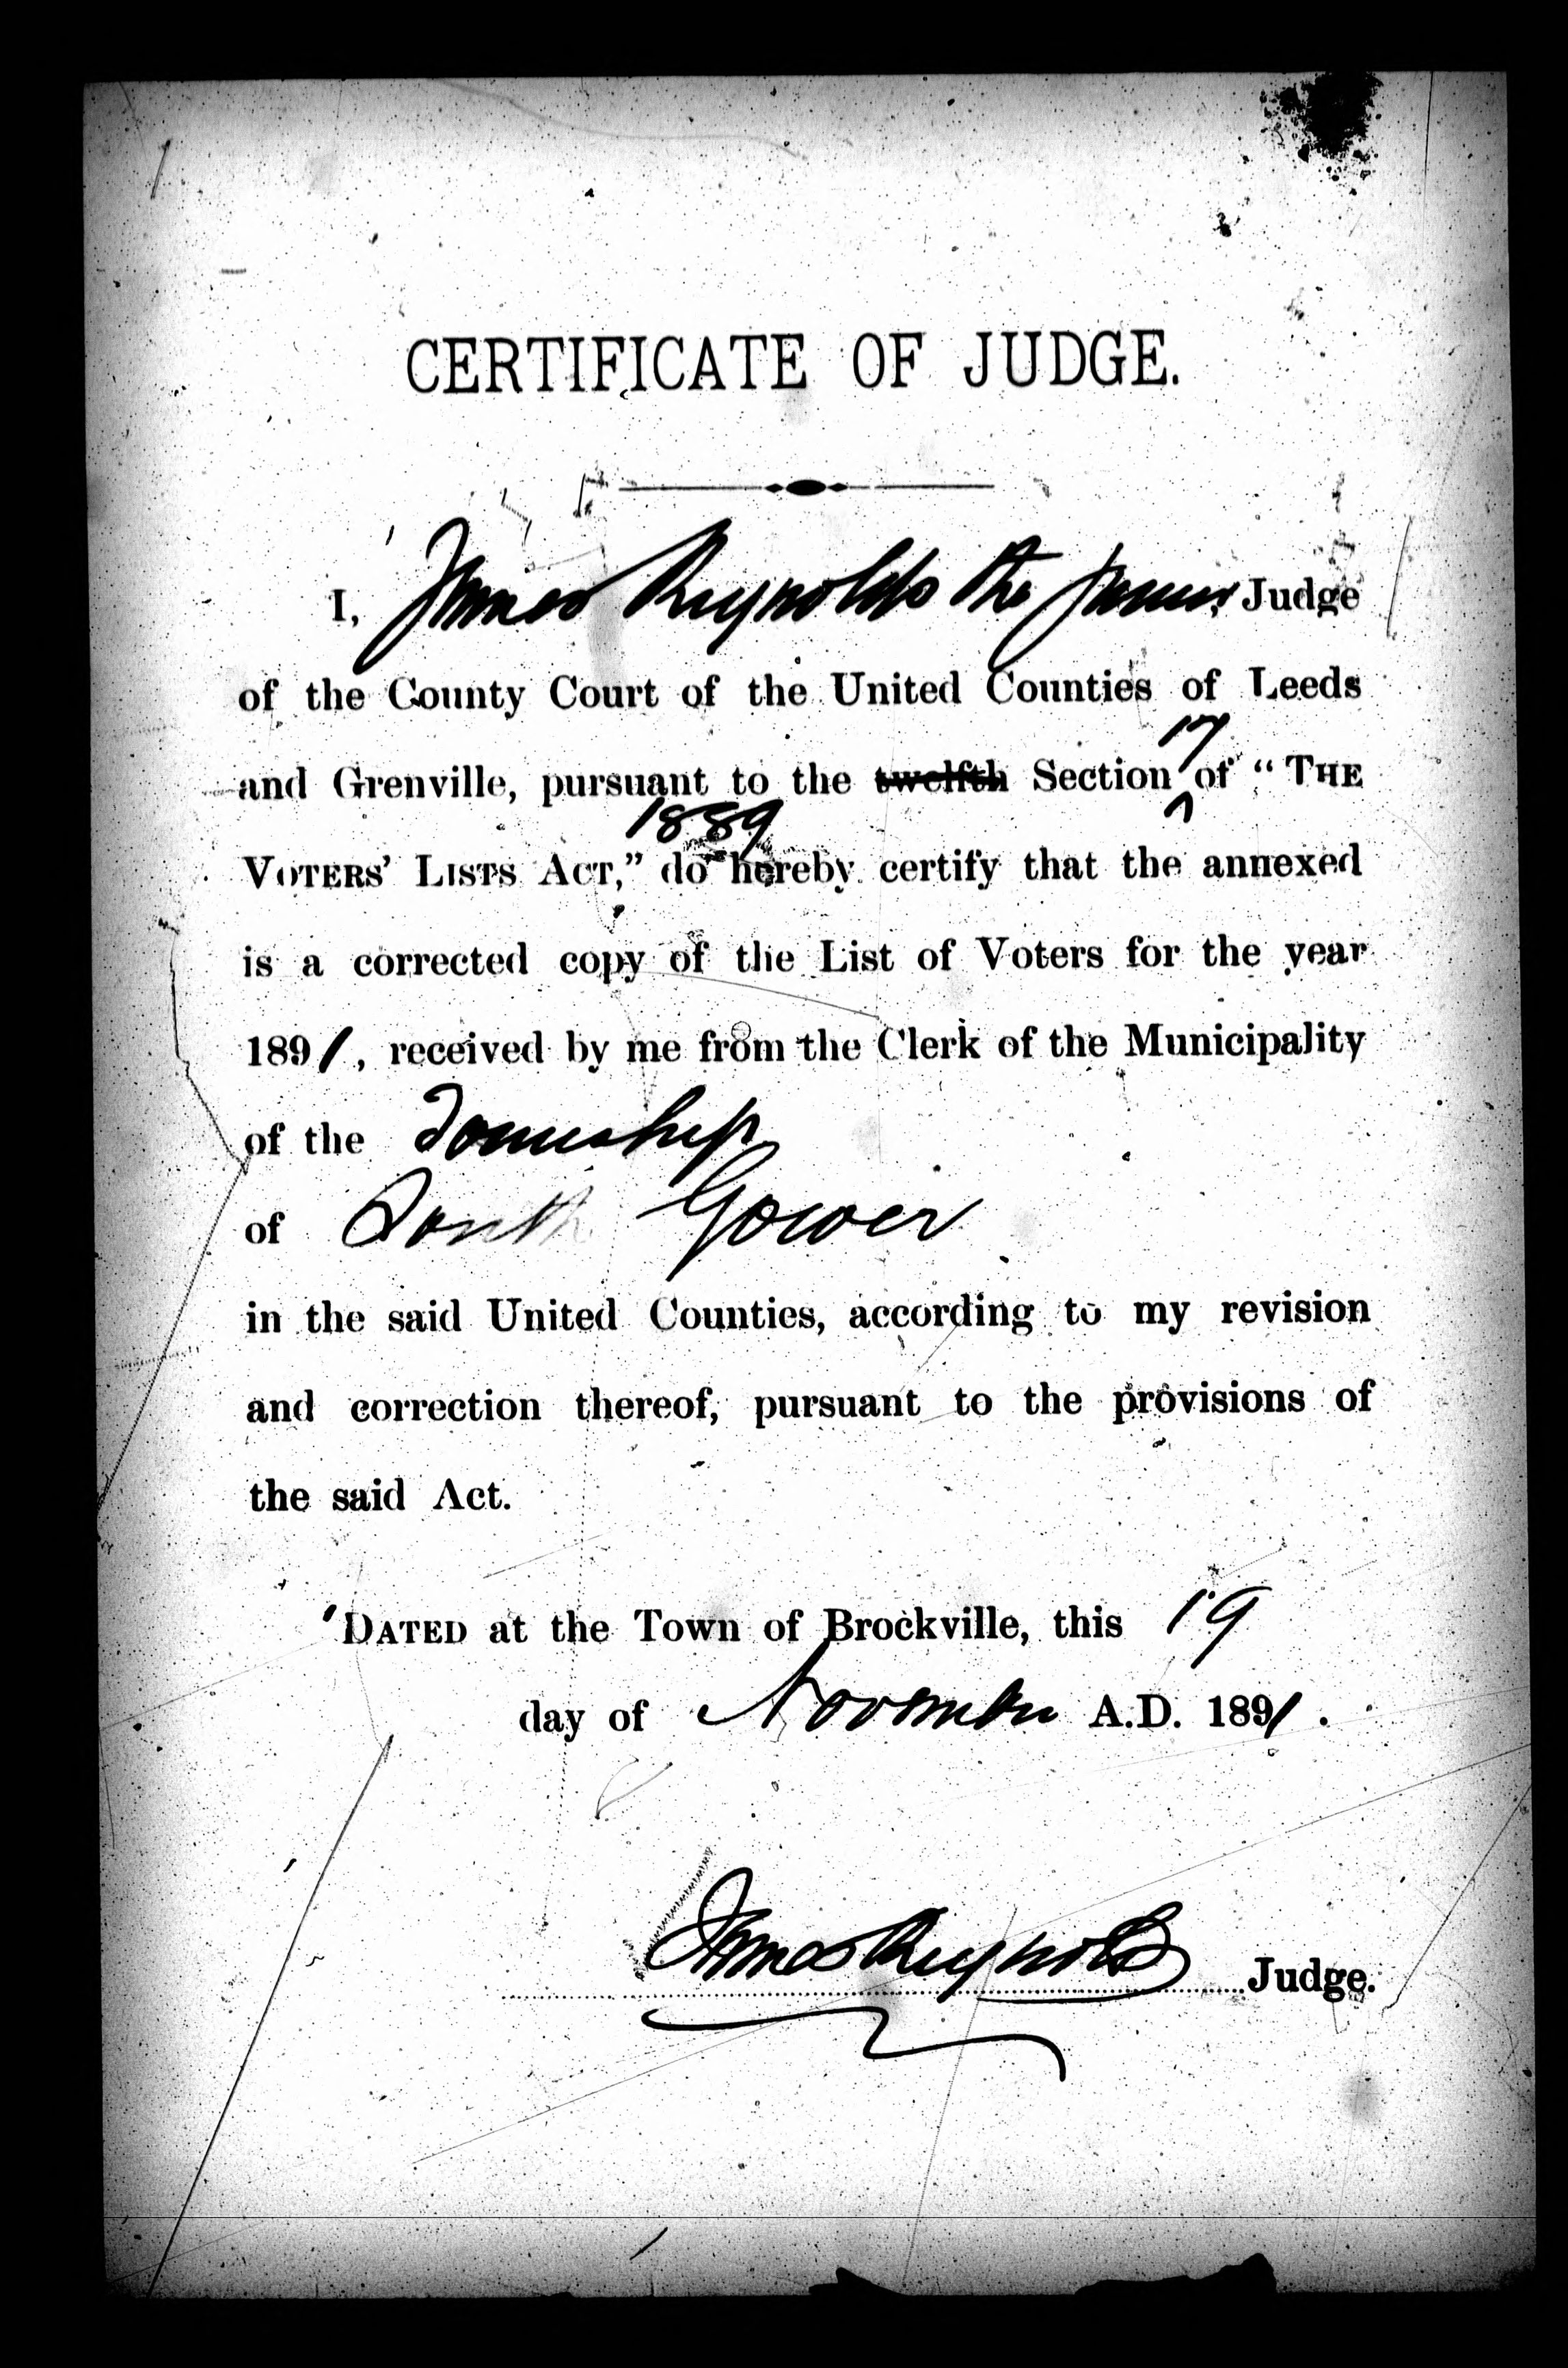 CERTIFICATE OF JUDGE.
I, James Reynolds the Junior Judge
of the County Court of the United Counties of Leeds
and Grenville, pursuant to the twelfth Section 17 of "THE
VOTERS' LISTS ACT," 1889 do hereby certify that the annexed
is a corrected copy of the List of Voters for the year
1891, received by me from the Clerk of the Municipality
of the Township
of South Gower
in the said United Counties, according to my revision
and correction thereof, pursuant to the provisions of
the said Act.
DATED at the Town of Brockville, this 19
day of November A.D. 1891.
James Reynolds Judge.